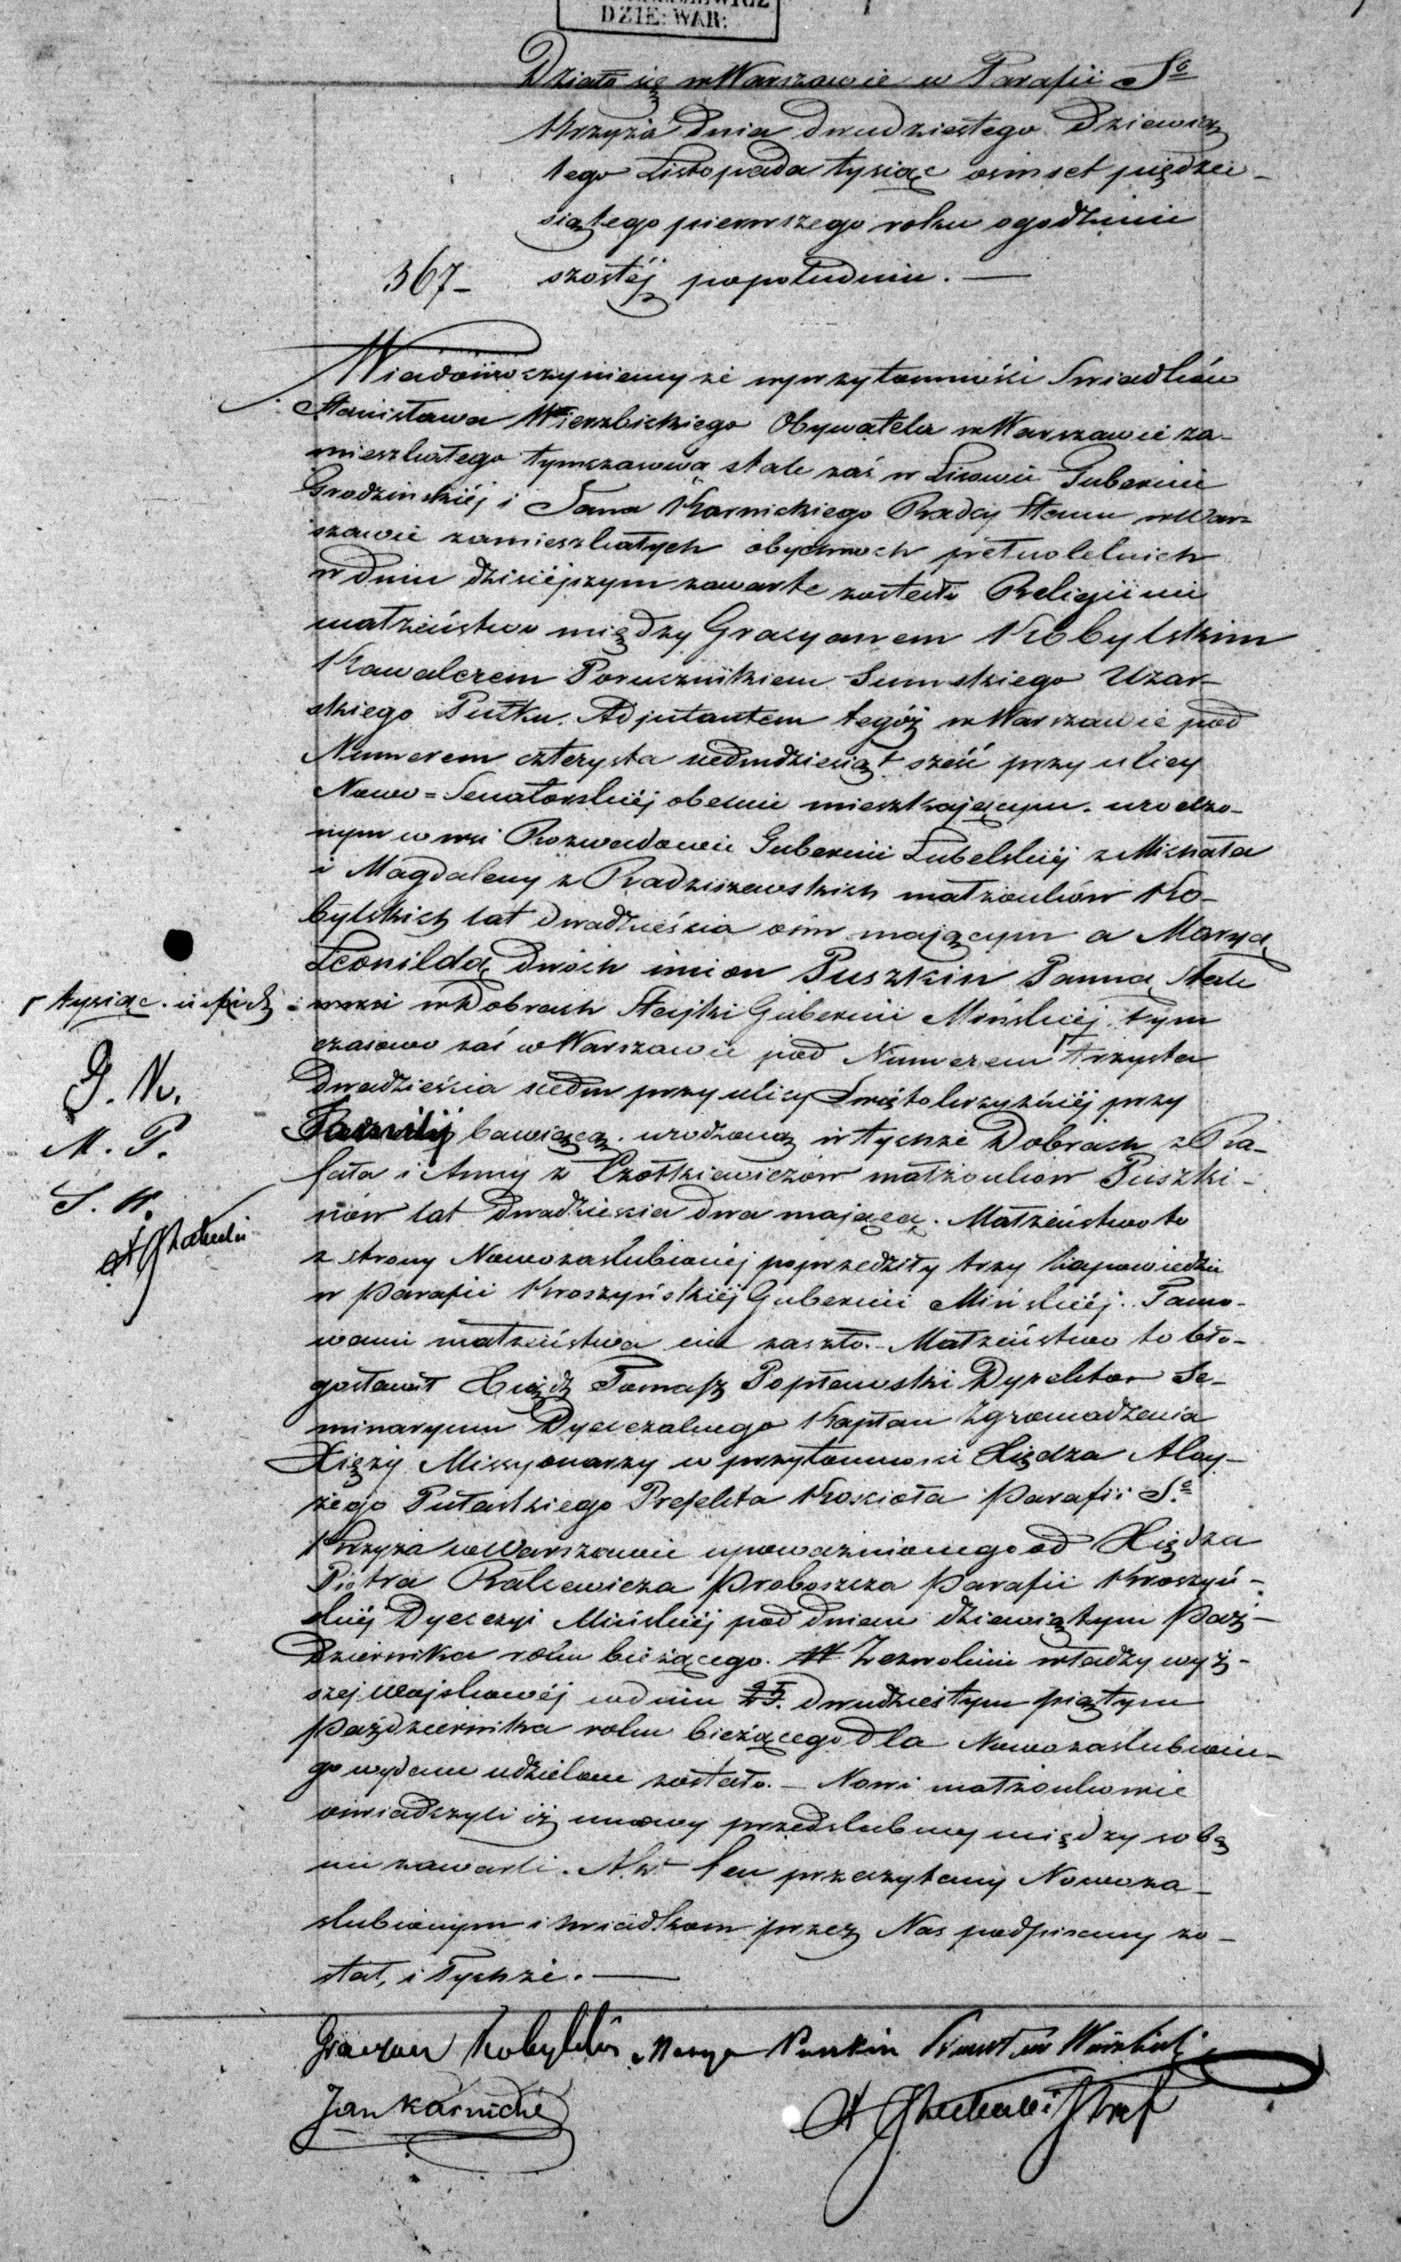 DZIE: WAR:
Działo się w Warszawie w Parafii Sgo
Krzyża Dnia dwudziestego Dziewią
tego Listopada tysiąc ośmset pięćdzie-
siątego pierwszego roku ogodzinie
367- szóstéj popołudniu. —
Wiadomo czyniemy że wprzytomności Świadków
Stanisława Wierzbickiego Obywatela w Warszawie za-
mieszkałego tymczasowo stale zaś w Lisowie Gubernii
Grodzińskiéj i Jana Karnickiego Radcy Stanu w War-
szawie zamieszkałych obydwóch pełnoletnich
w dniu dzisiejszym zawarte zostało Religijne
małżeństwo między Gracyanem Kobylskim
Kawalerem Porucznikiem Sumskiego Uzar-
skiego Pułku. Adjutantem tegóż w Warszawie pod
Numerem czterysta siedmdziesiąt sześć przy ulicy
Nowo=Senatorskiéj obecnie mieszkającym. urodzo-
nym w wsi Rozwadowie Gubernii Lubelskiéj z Michała
i Magdaleny z Radziszewskich małżonków Ko-
bylskich lat dwadzieścia ośm mającym a Maryą
Leonildą dwóch imion Puszkin Panną stale
w Dobrach Stajki Gubernii Mińskiéj tym
czasowo zaś w Warszawie pod Numerem ⌈ trzysta
Dwadzieścia siedm przy ulicy Świętokrzyzkiéj przy
Familij bawiącą. urodzoną w tychże Dobrach z Ra-
fała i Anny z Czołkiewiczów małżonków Puszki-
nów lat dwadzieścia dwa mającą. Małżeństwo to
z strony Nowozaślubionéj poprzedziły trzy Zapowiedzie
w Parafii Kroszyńskiéj Gubernii Mińskiéj. Tamo-
wanie małżeństwa nie zaszło.- Małżeństwo to bło-
gosławił Xiądz Tomasz Popławski Dyrektor Se-
minaryum Dyecezalnego Kapłan Zgromadzenia
Xięży Missyonarzy w przytomności Xiędza Aloy-
zego Putiatskiego Prefekta Kościoła Parafii Sgo
Krzyża w Warszawie upoważnionego od Xiędza
Piotra Proboszcza Parafii Kroszyń-
skiéj Dyecezyi Mińskiéj pod dniem dziewiątym Paź-
dziernika roku bieżącego. Zezwolenie władzy wyż-
szej Wojskowéj w dniu 25. dwudziestym piątym
Października roku bieżącego dla Nowozaślubione-
go wydane udzielone zostało.- Nowi małżonkowie
oświadczyli iż umowy przedślubney między sobą
nie zawarli. Akt ten przeczytany Nowoza-
ślubionym i świadkom przez Nas podpisany zo-
stał, i Tychże. —
⌈ tysiąc
G. K.
M. P.
S. W.
Gracyan Kobylski Marya Puszkin Wierzbicki
Jan Karnicki